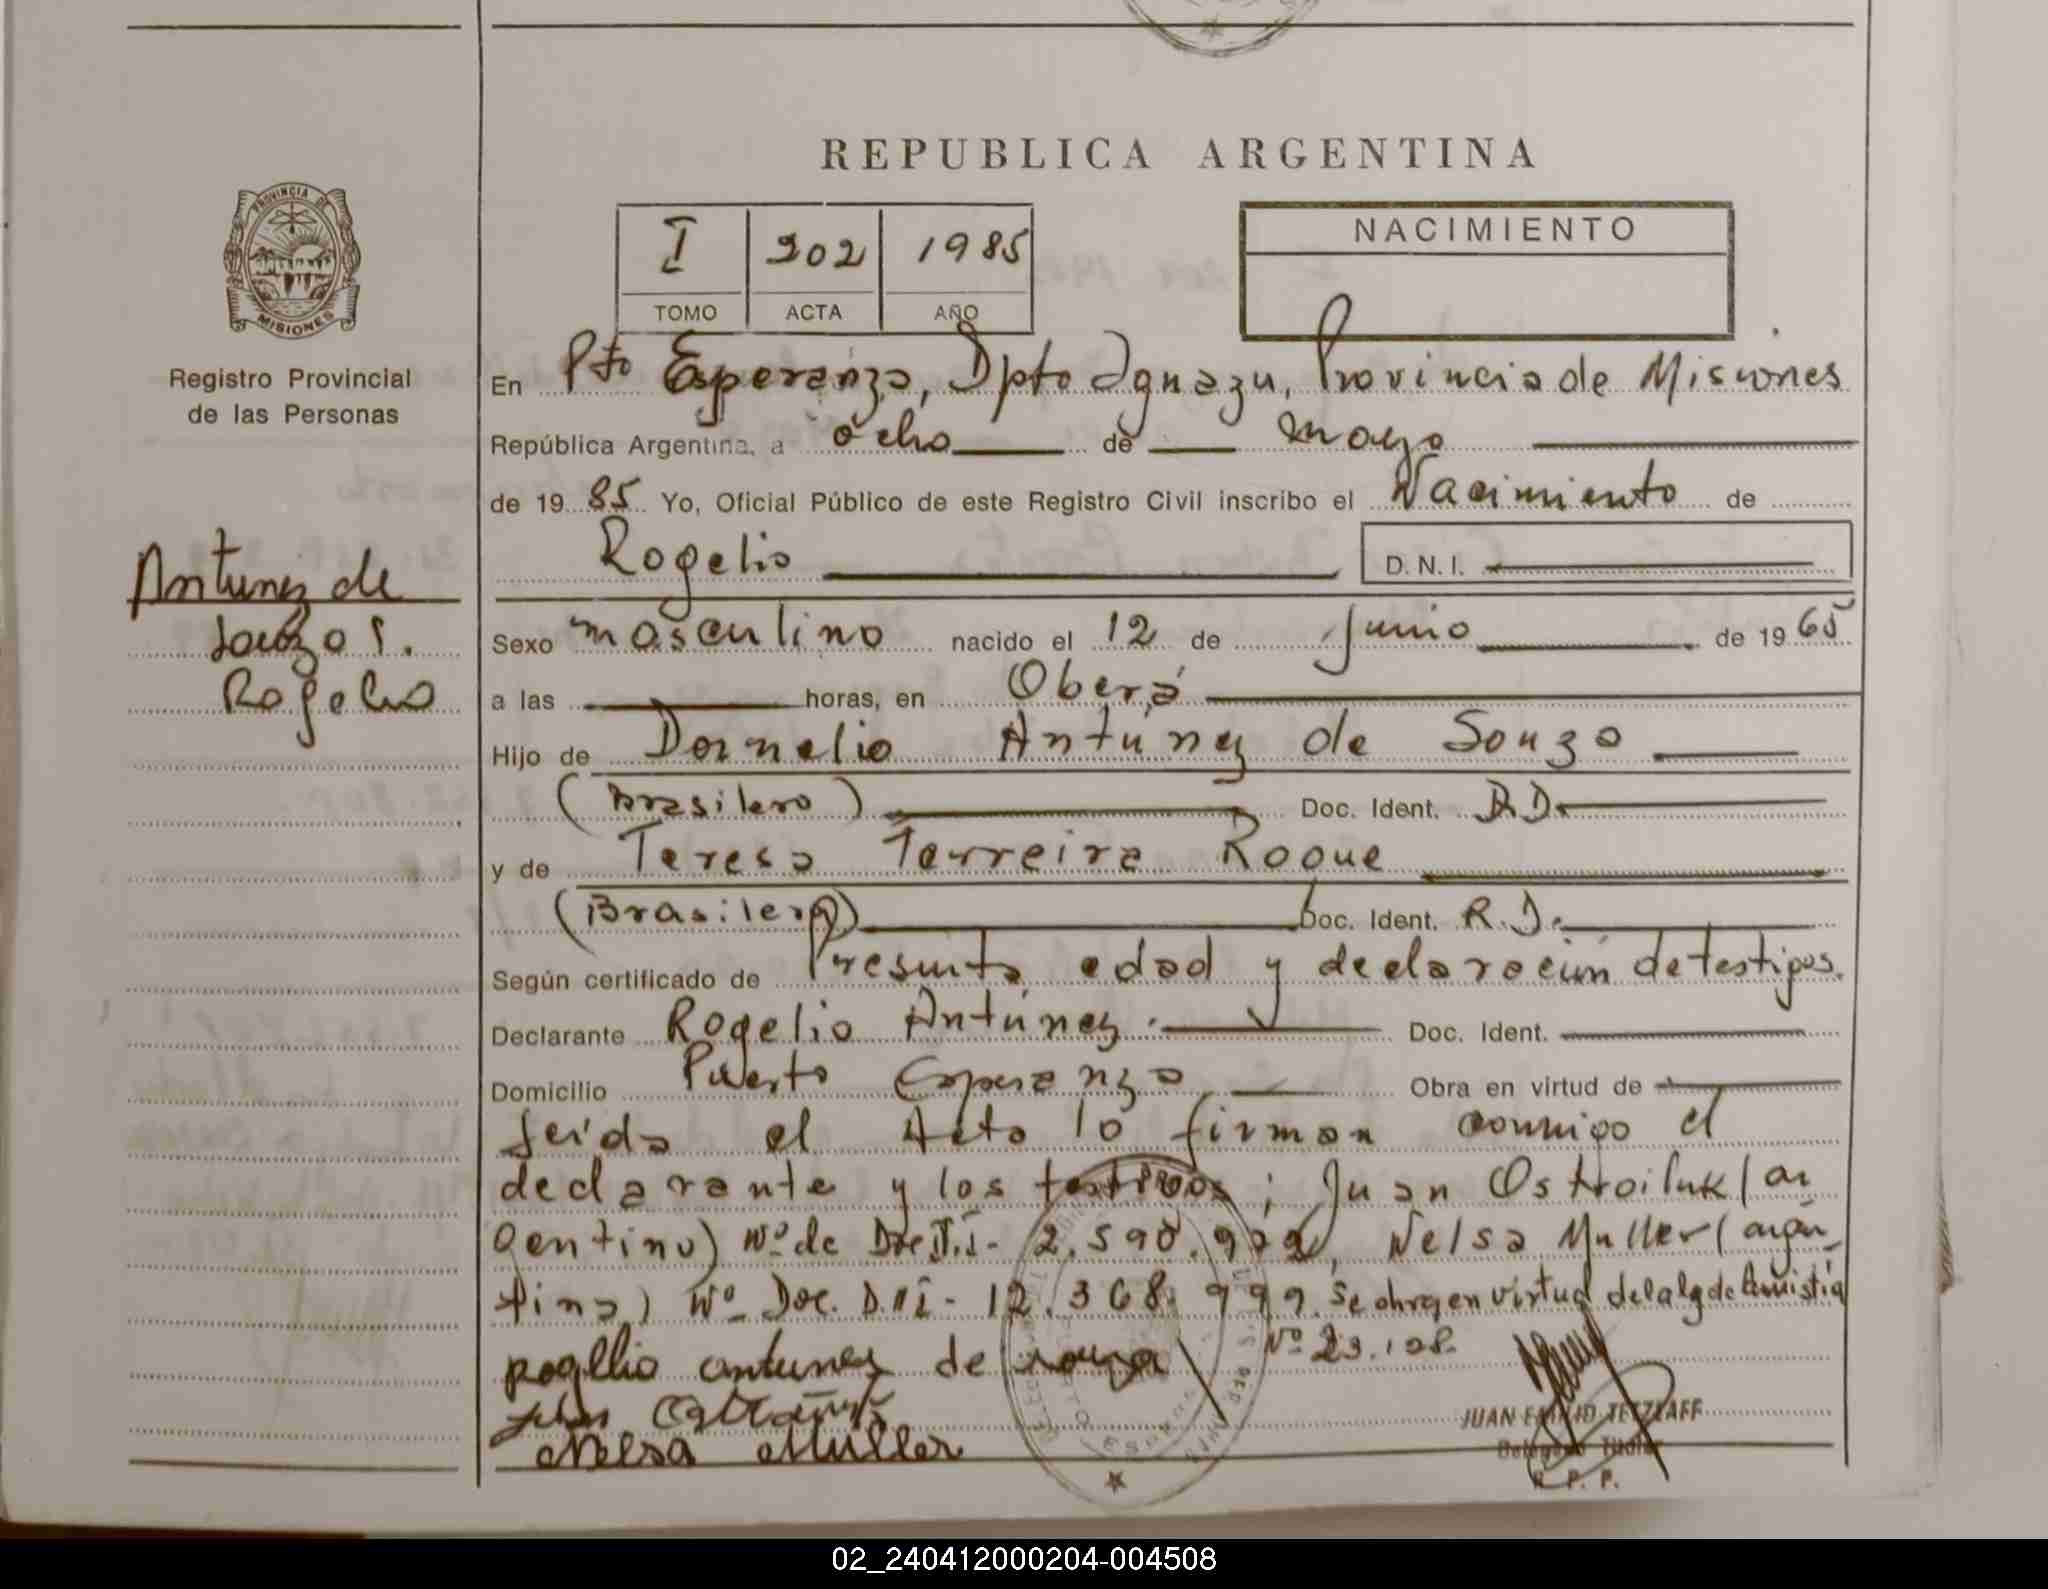 REPUBLICA ARGENTINA
PROVINCIA DE
MISIONES
Registro Provincial
de las Personas
I 202 1985
TOMO ACTA AÑO
NACIMIENTO
En Pto Esperanza, Dpto Iguazu, Provincia de Misiones
República Argentina, a ocho de mayo
de 1985 Yo, Oficial Público de este Registro Civil inscribo el Nacimiento de
Rogelio D.N.I.
Antunez de
Souza S.
Rogelio
Sexo masculino nacido el 12 de junio de 1965
a las horas, en Oberá
Hijo de Dornelio Antúnez de Souza
(Brasilero) Doc. Ident.
y de Teresa Ferreira Roque
(Brasilera) Doc. Ident. R.D.
Según certificado de Presunta edad y declaración de testigos.
Declarante Rogelio Antúnez. Doc. Ident.
Domicilio Puerto Esperanza Obra en virtud de
Leída el Acta lo firman conmigo el
declarante y los testigos; Juan (ar
gentino) Nº de Doc 2.590. Nelsa Muller (argen
tina) Nº Doc. D.N.I- 12.368.999. Se obra en virtud de la ley de Amnistía
Nº 23.
rogelio antunes de souza
Nelsa Muller
JUAN EMILIO TETZLAFF
Delegado Titular
R. P. P.
02_240412000204-004508